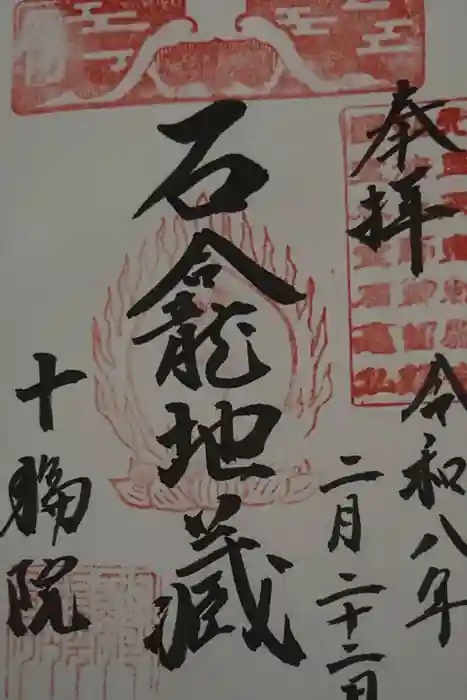 奉拝
令和八年
二月二十二日
石龕地蔵
十輪院